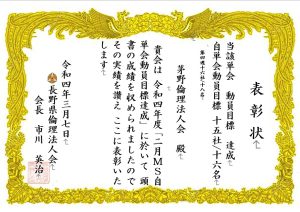 表彰状
当該単会 動員目標 達成
自単会動員目標 十五社/十六名
第四週十六社/十八名
茅野倫理法人会 殿
貴会は 令和四年度「二月MS自
単会動員目標達成」に於いて 頭
書の成績を収められましたので
その実績を讃え ここに表彰いた
します
令和四年三月七日
長野県倫理法人会
会長 市川 英治